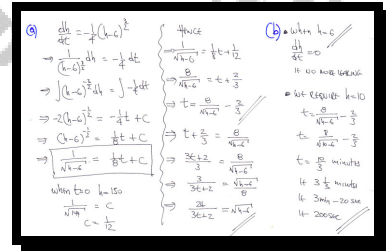 (a) dh/dt = -1/4 (h-6)^(3/2)
⇒ 1/(h-6)^(3/2) dh = -1/4 dt
⇒ ∫(h-6)^(-3/2) dh = ∫-1/4 dt
⇒ -2(h-6)^(-1/2) = -1/4 t + C
⇒ (h-6)^(-1/2) = 1/8 t + C
⇒ 1/√(h-6) = 1/8 t + C
when t=0 h=150
1/√144 = C
C = 1/12
HENCE
1/√(h-6) = 1/8 t + 1/12
⇒ 8/√(h-6) = t + 2/3
⇒ t = 8/√(h-6) - 2/3
⇒ t + 2/3 = 8/√(h-6)
⇒ (3t+2)/3 = 8/√(h-6)
⇒ 3/(3t+2) = √(h-6)/8
⇒ 24/(3t+2) = √(h-6)
(b) • when h=6
dh/dt = 0
IE NO MORE LEAKING
• WE REQUIRE h=10
t = 8/√(h-6) - 2/3
t = 8/√(h-6) - 2/3
t = 10/3 minutes
IE 3 1/3 minutes
IE 3min - 20 sec
IE 200 sec